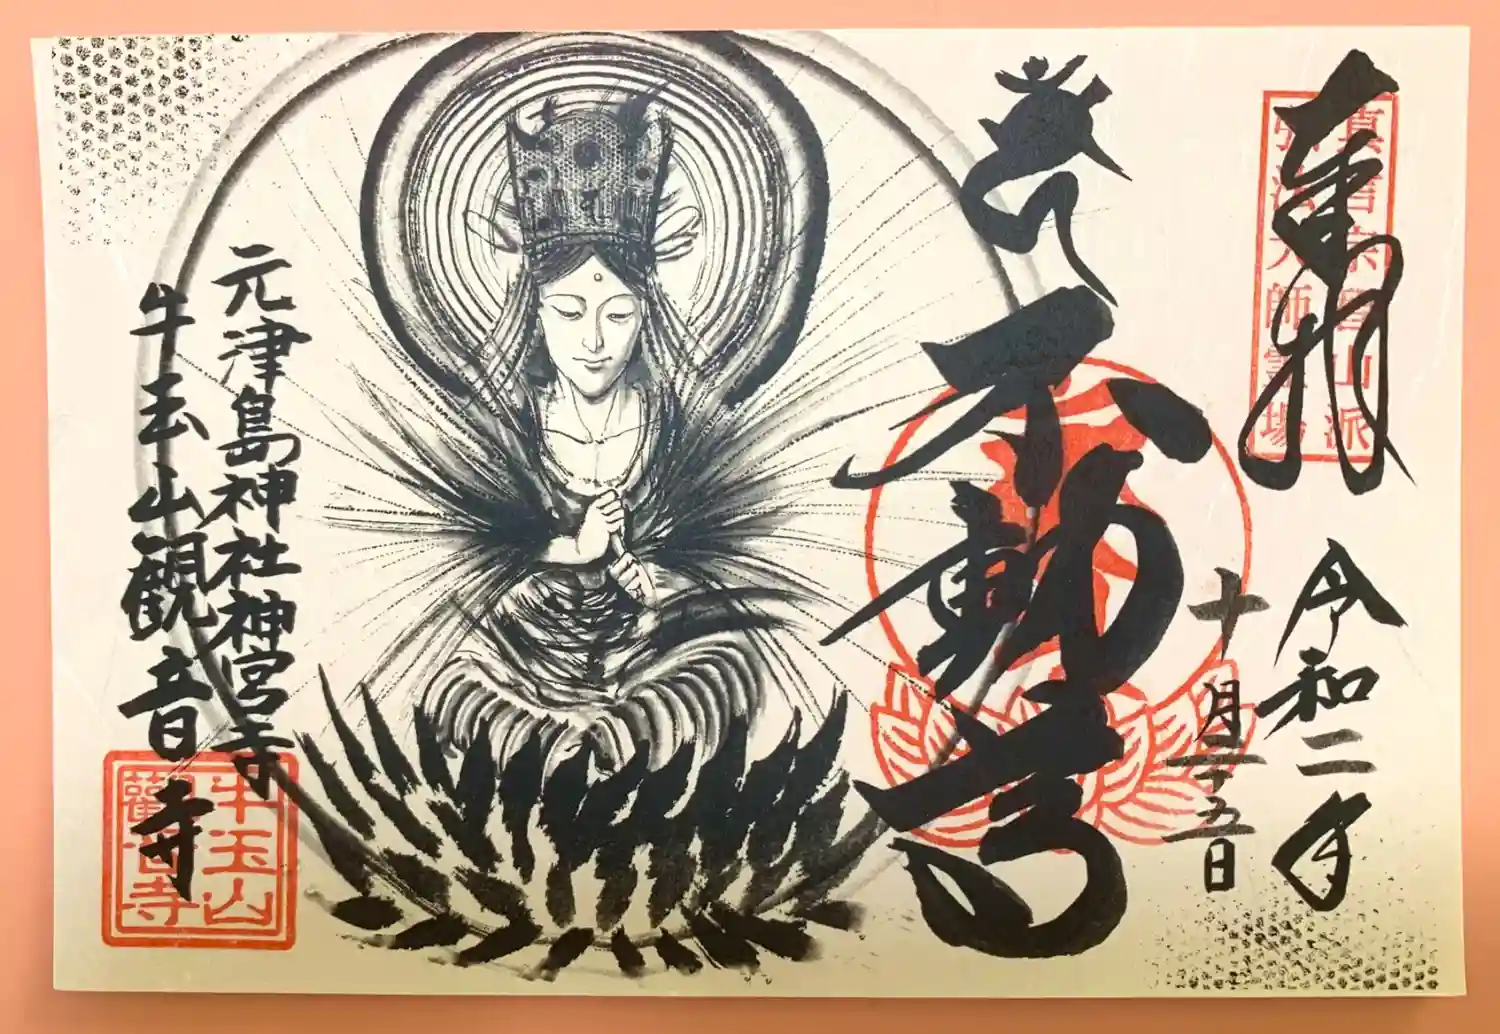 奉拝
真言宗醍醐山派
弘法大師霊場
令和二年
十月二十五日
不動尊
元津島神社神宮寺
牛玉山観音寺
牛玉山
観音寺